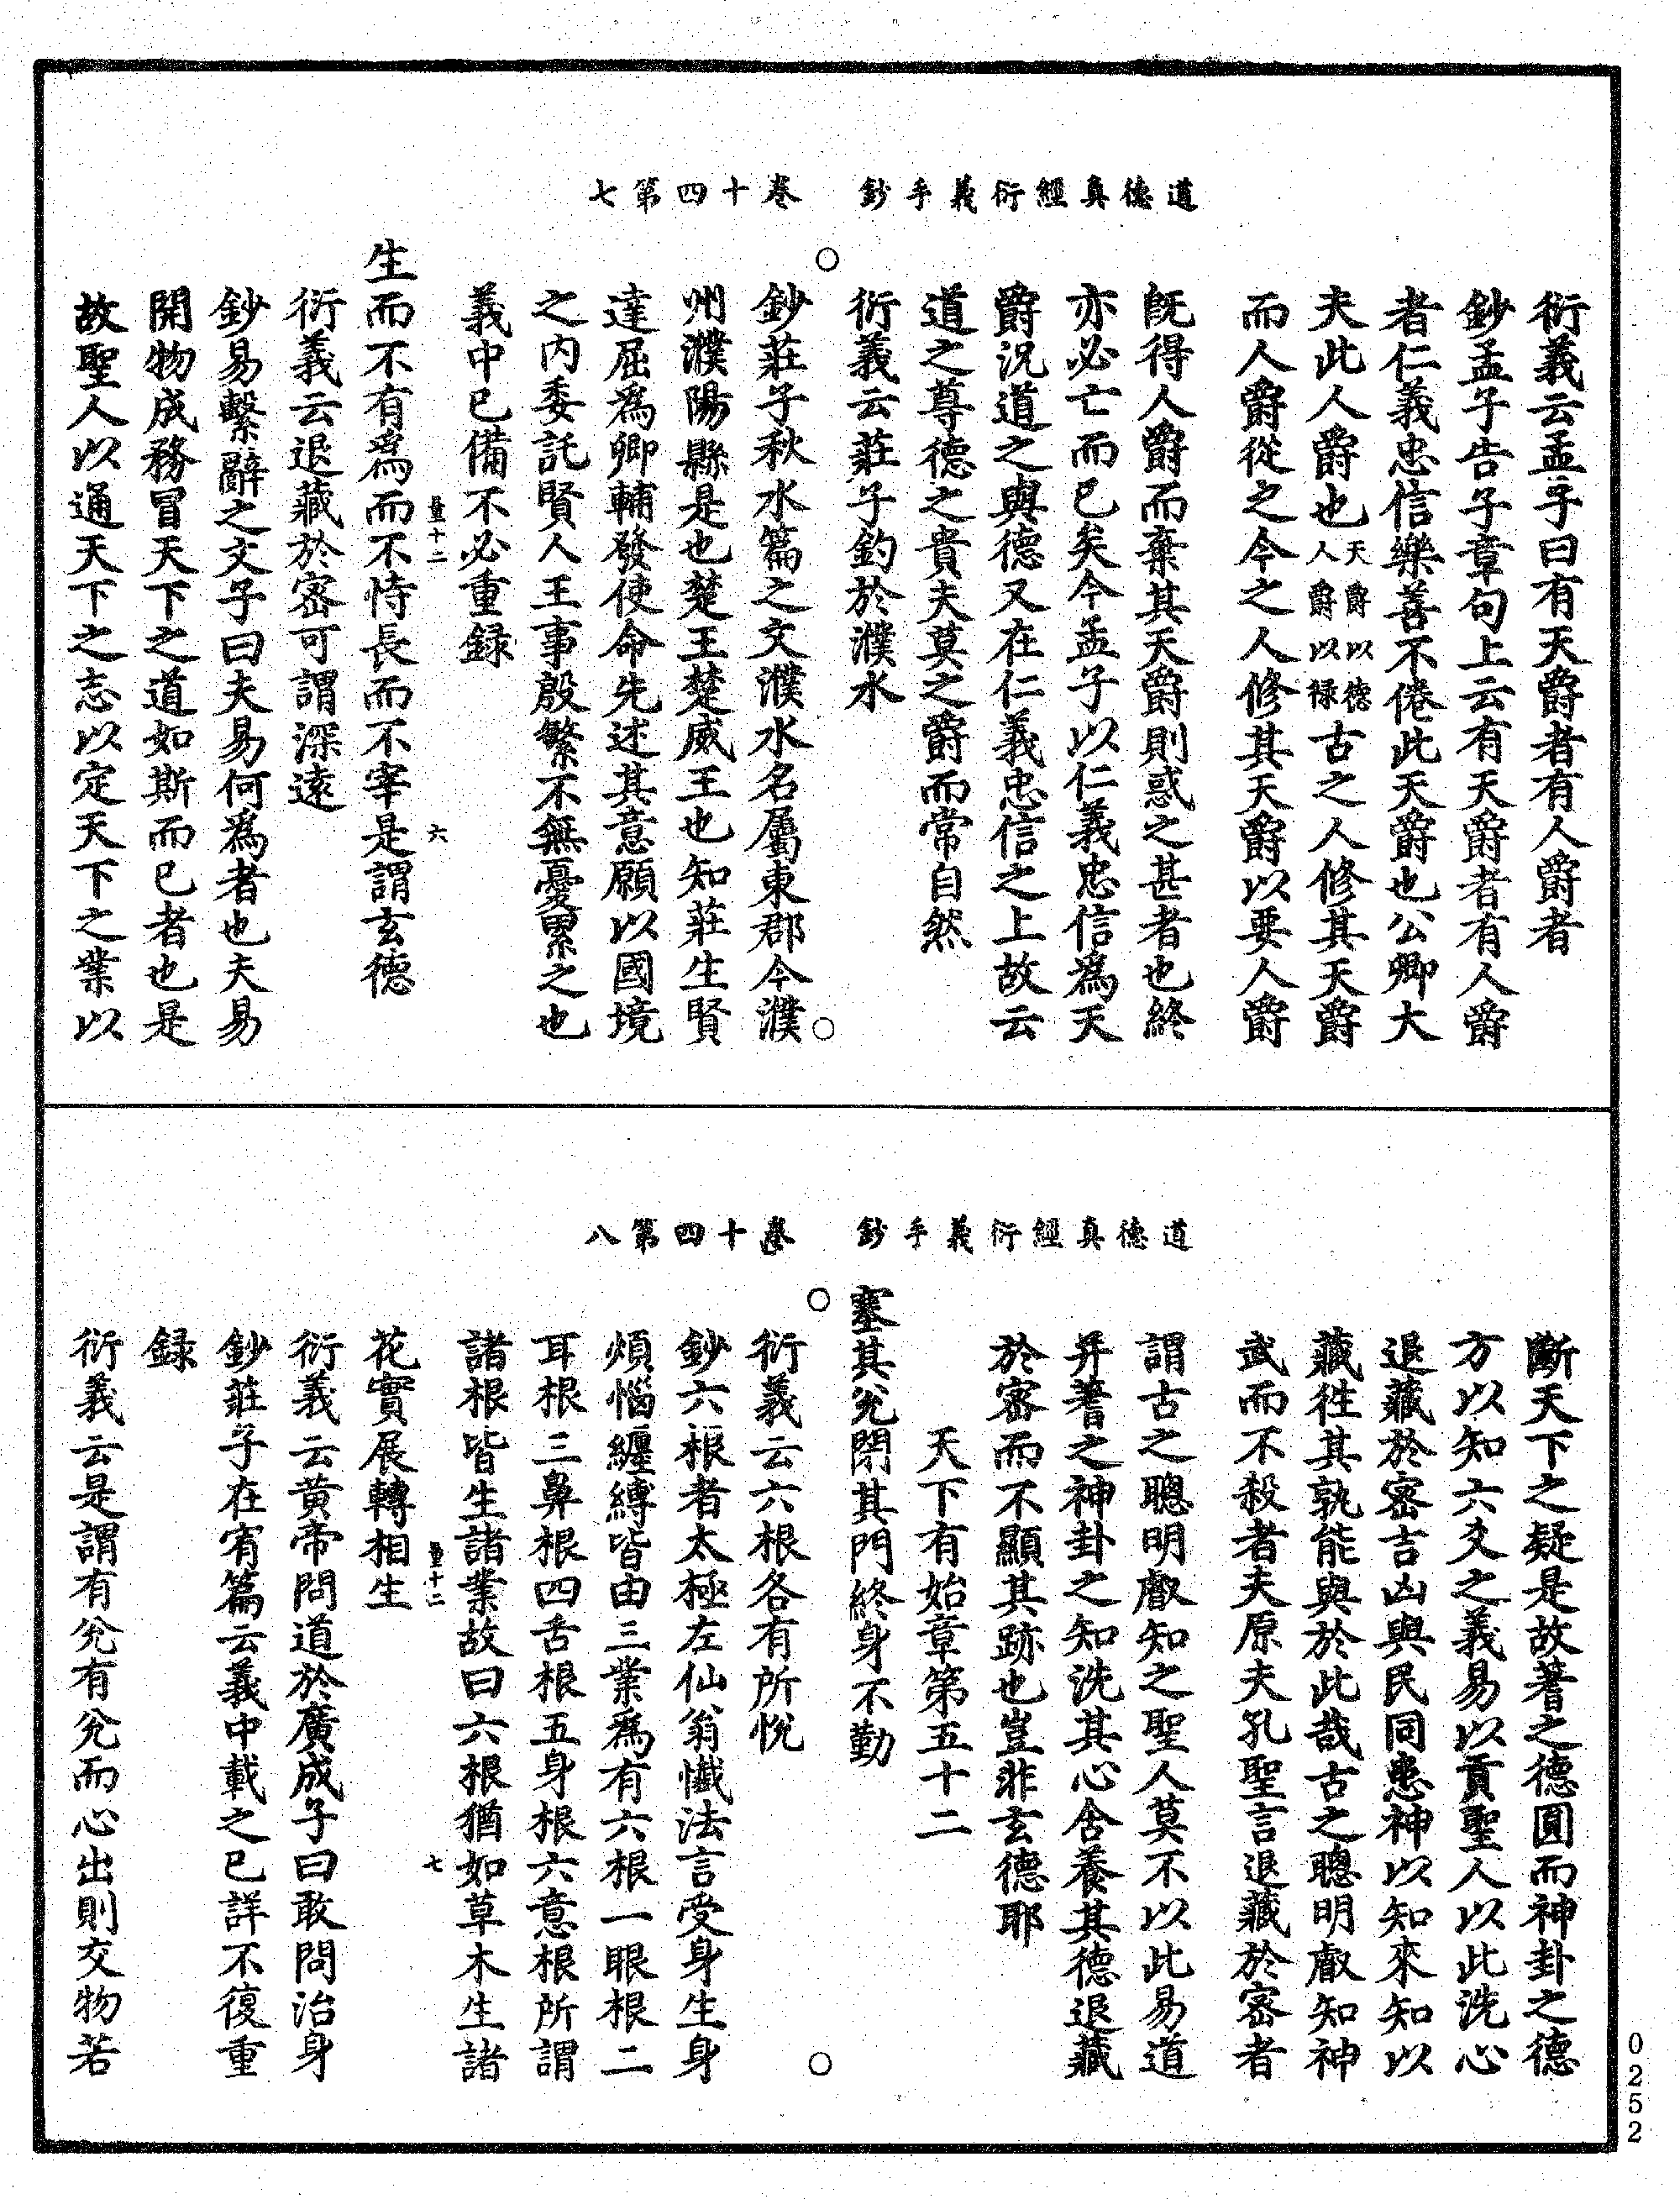 道德真經衍義手鈔　卷十四第七
衍義云孟子曰有天爵者有人爵者
鈔孟子告子章句上云有天爵者有人爵
者仁義忠信樂善不倦此天爵也公卿大
夫此人爵也天爵以德人爵以祿古之人修其天爵
而人爵從之今之人修其天爵以要人爵
既得人爵而棄其天爵則惑之甚者也終
亦必亡而已矣今孟子以仁義忠信為天
爵況道之與德又在仁義忠信之上故云
道之尊德之貴夫莫之爵而常自然
衍義云莊子釣於濮水
鈔莊子秋水篇之文濮水名屬東郡今濮
州濮陽縣是也楚王楚威王也知莊生賢
達屈為卿輔發使命先述其意願以國境
之內委託賢人王事殷繁不無憂累之也
義中已備不必重録
量十二　六
生而不有為而不恃長而不宰是謂玄德
衍義云退藏於密可謂深遠
鈔易繫辭之文子曰夫易何為者也夫易
開物成務冒天下之道如斯而已者也是
故聖人以通天下之志以定天下之業以
道德真經衍義手鈔　卷十四第八
斷天下之疑是故蓍之德圓而神卦之德
方以知六爻之義易以貢聖人以此洗心
退藏於密吉凶與民同患神以知來知以
藏往其孰能與於此哉古之聰明叡知神
武而不殺者夫原夫孔聖言退藏於密者
謂古之聰明叡知之聖人莫不以此易道
并蓍之神卦之知洗其心含養其德退藏
於密而不顯其跡也豈非玄德耶
天下有始章第五十二
塞其兊閉其門終身不勤
衍義云六根各有所悅
鈔六根者太極左仙翁懺法言受身生身
煩惱纏縛皆由三業為有六根一眼根二
耳根三鼻根四舌根五身根六意根所謂
諸根皆生諸業故曰六根猶如草木生諸
量十二　七
花實展轉相生
衍義云黃帝問道於廣成子曰敢問治身
鈔莊子在宥篇云義中載之已詳不復重
録
衍義云是謂有兊有兊而心出則交物若
0252